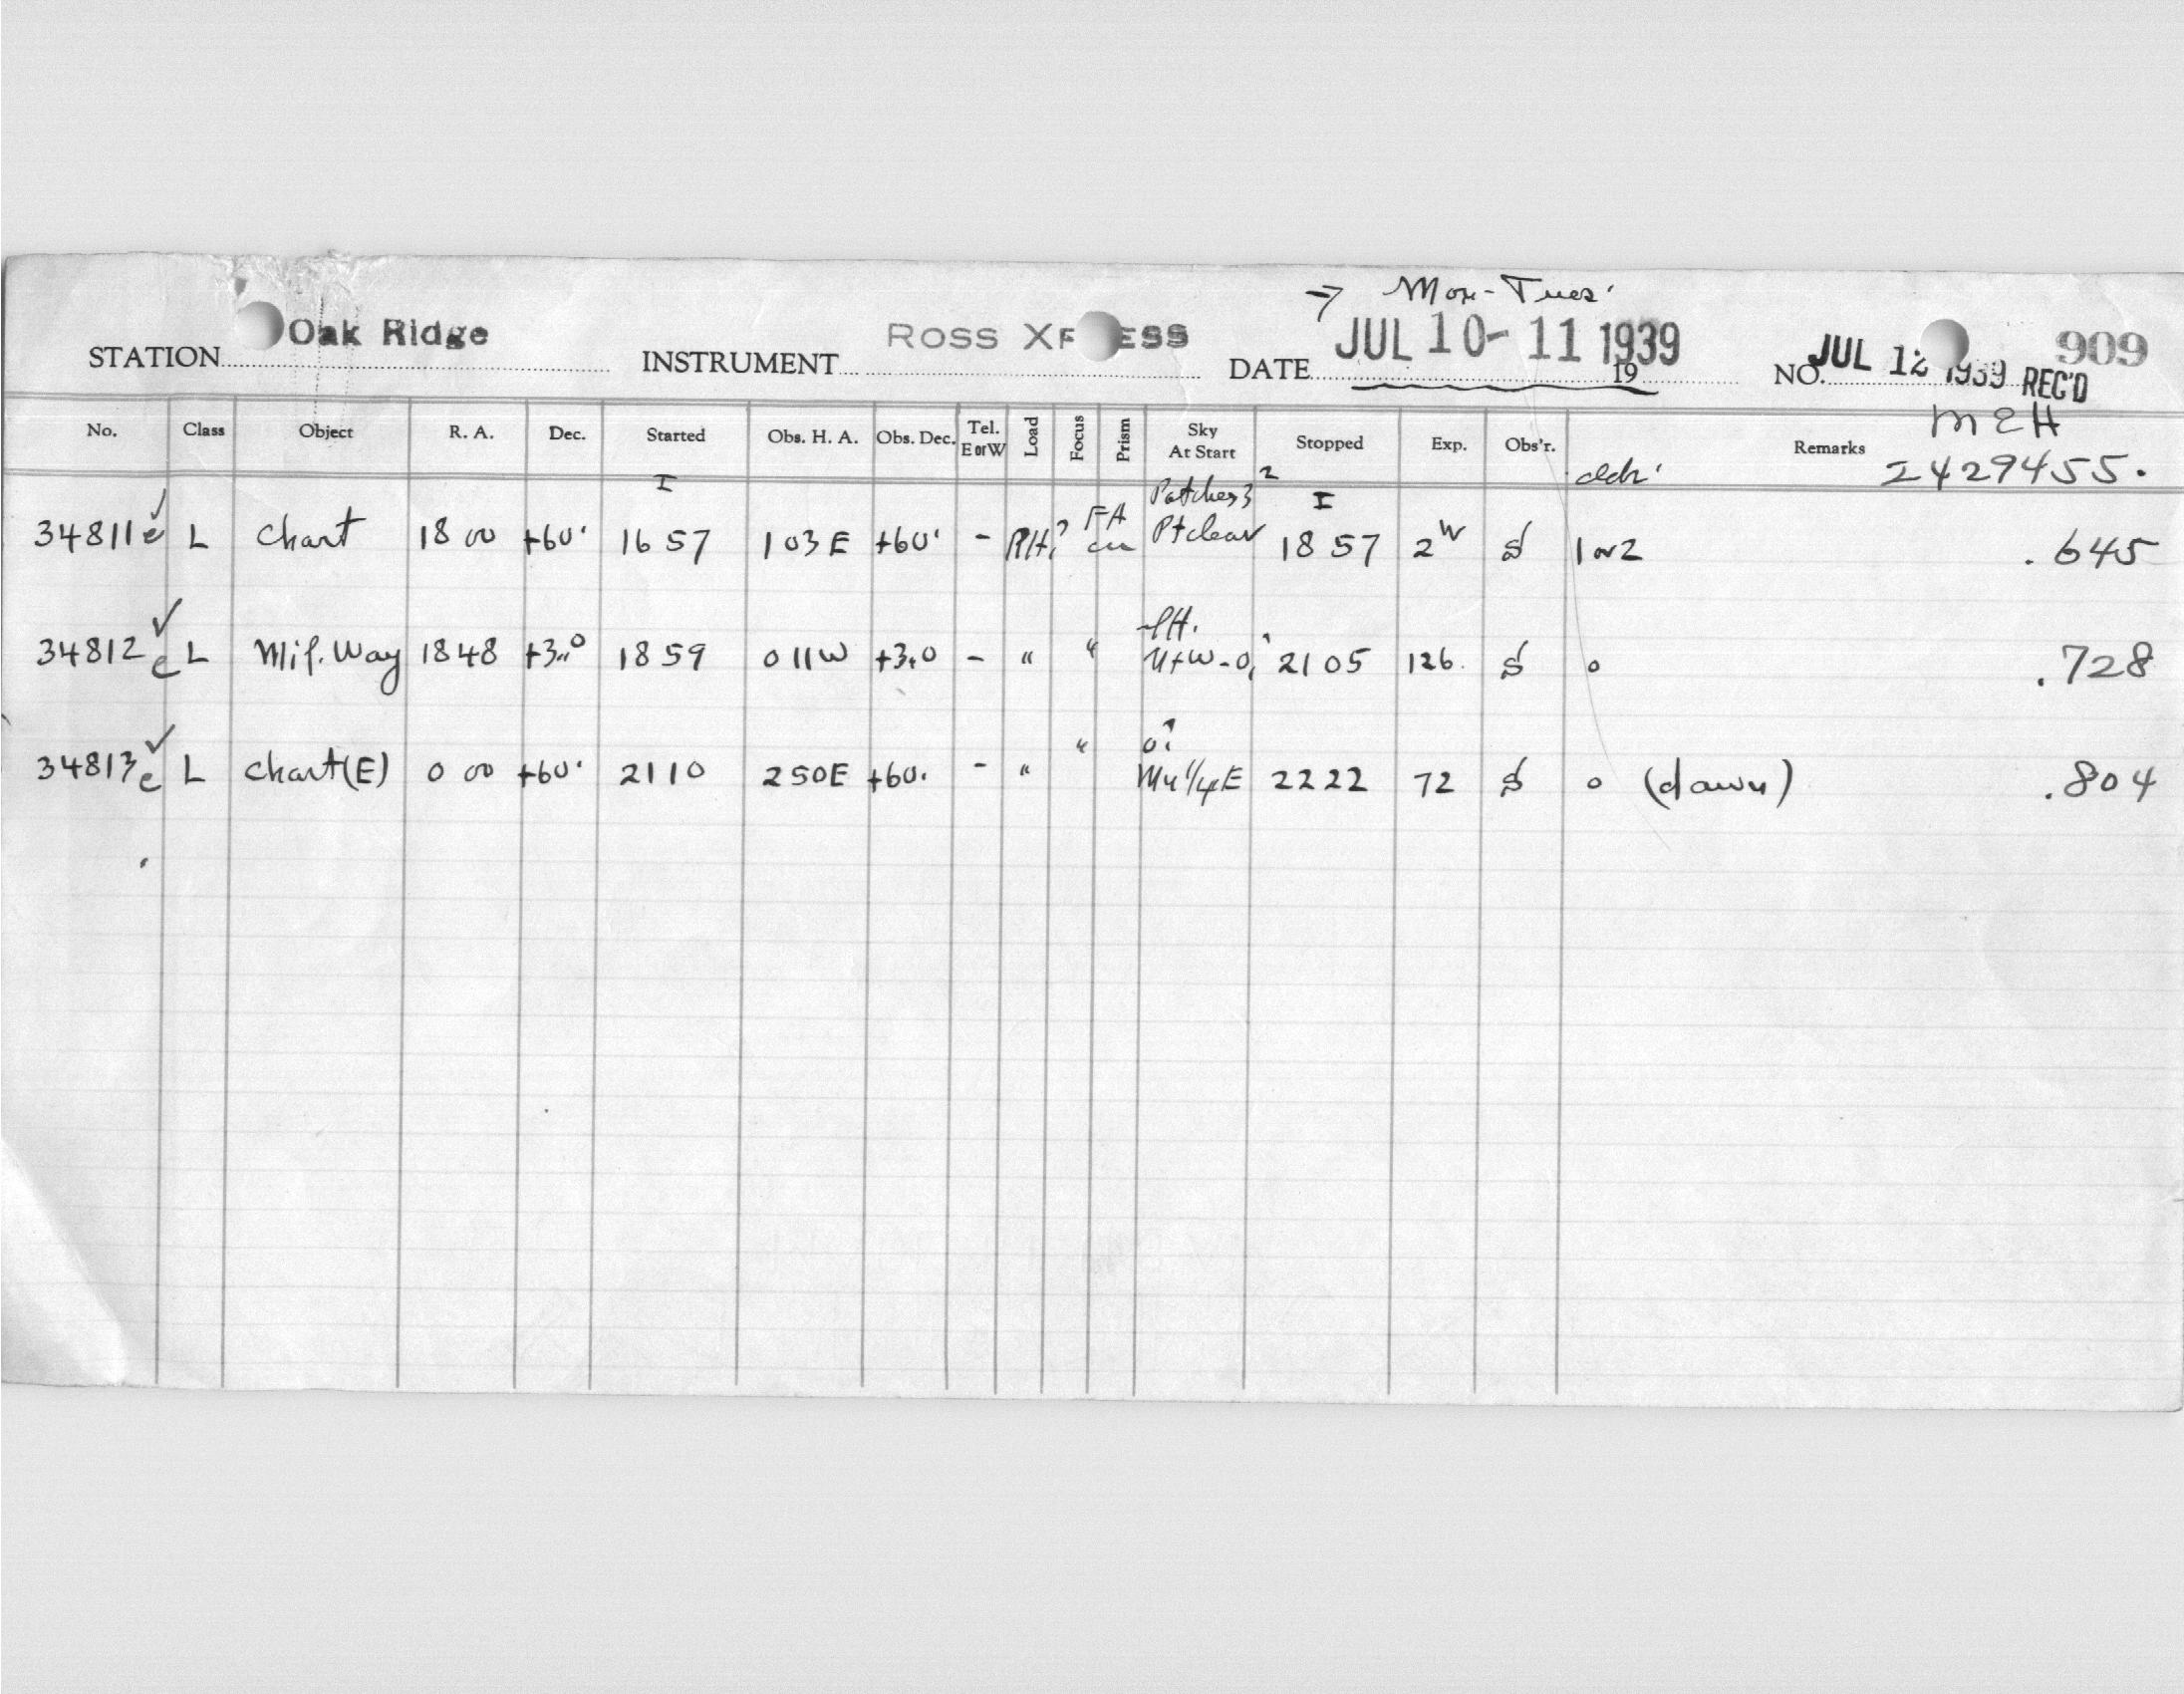 → Mon-Tues.
STATION Oak Ridge INSTRUMENT ROSS XPRESS DATE JUL 10-11 1939 19 NO. JUL 12 1939 REC'D 909
MEH
No. Class Object R. A. Dec. Started Obs. H. A. Obs. Dec. Tel. E or W Load Focus Prism Sky At Start Stopped Exp. Obs'r. Remarks
2429455.
34811 e ✓ L Chart 18 00 +60° I 16 57 1 03 E +60° - PH? FA Patches Pt clear 2 I 18 57 2 S 1 or 2 .645
34812 e ✓ L Mil. Way 18 48 +3.0 18 59 0 11 W +3.0 - " " 21 05 126 S 0 .728
34813 e ✓ L Chart (E) 0 00 +60° 21 10 2 50 E +60° - " " 0? 1/4 E 22 22 72 S 0 (dawn) .804